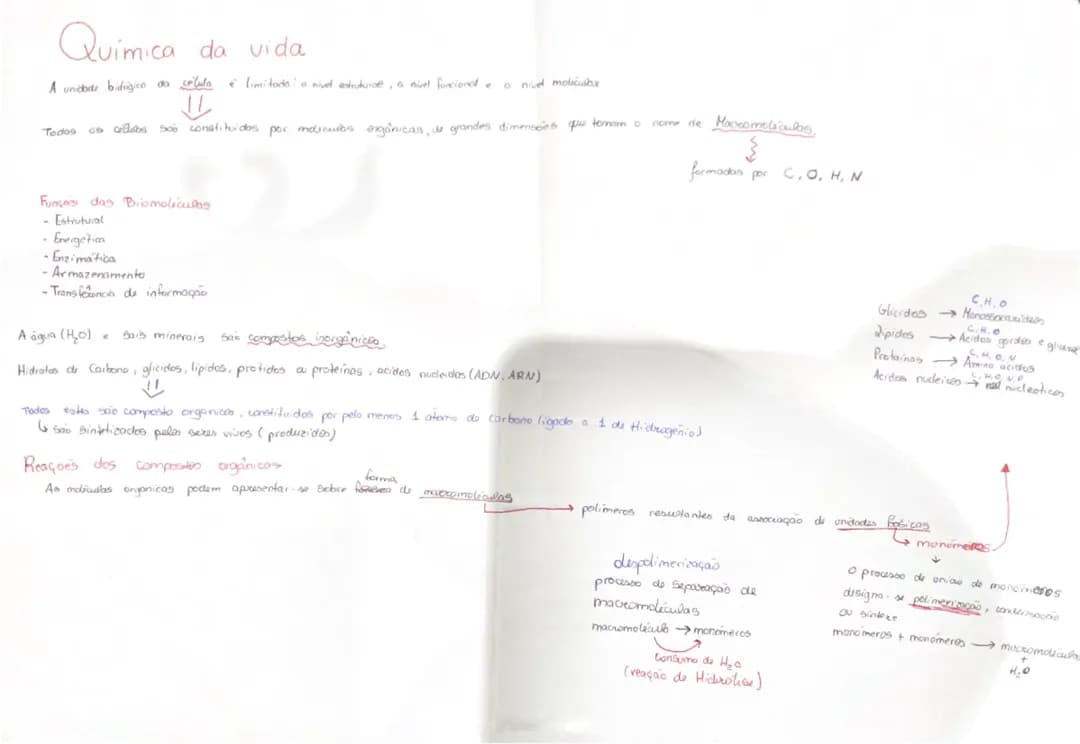 Química da vida
A unidade biológica da célula é limitada: a nível estrutural, a nível funcional e a nível molécular
Todas as células são constituidas por moléculas orgânicas, de grandes dimensões que tomam o nome de Macromoléculas
formadas por C, O, H, N
Funções das Biomoléculas
- Estrutural
- Energética
- Enzimática
- Armazenamento
- Transferência de informação
A água (H₂O) e Sais minerais são compostos inorgânicos
Hidratos de Carbono, glícidos, lípidos, protidos ou proteínas, acidos nucleicos (ADN, ARN)
Todos estes são composto organicos, constituidos por pelo menos 1 atomo de carbono ligado a 1 de Hidrogénio)
↳ são sintetizados pelos seres vivos (produzidos)
Glícidos → C, H, O Monossacarideos
Lípidos → C, H, O Ácidos gordos e glicerol
Proteínas → C, H, O, N Amino acidos
Acidos nucleicos → C, H, O, N, P nucleoticos
Reações dos compostos orgânicos
As moléculas organicas podem apresentar-se sobre forma de macromoléculas
→ polímeros resultantes da associação de unidades básicas
↳ monómeros
O processo de uniao de monómeros
designa-se polimerização, condensação
ou síntese
monómeros + monómeros → macromolécula
+
H₂O
despolimerização
processo de separação de
macromoléculas
macromolécula → monómeros
Consumo de H₂O
(reação de Hidrólise)